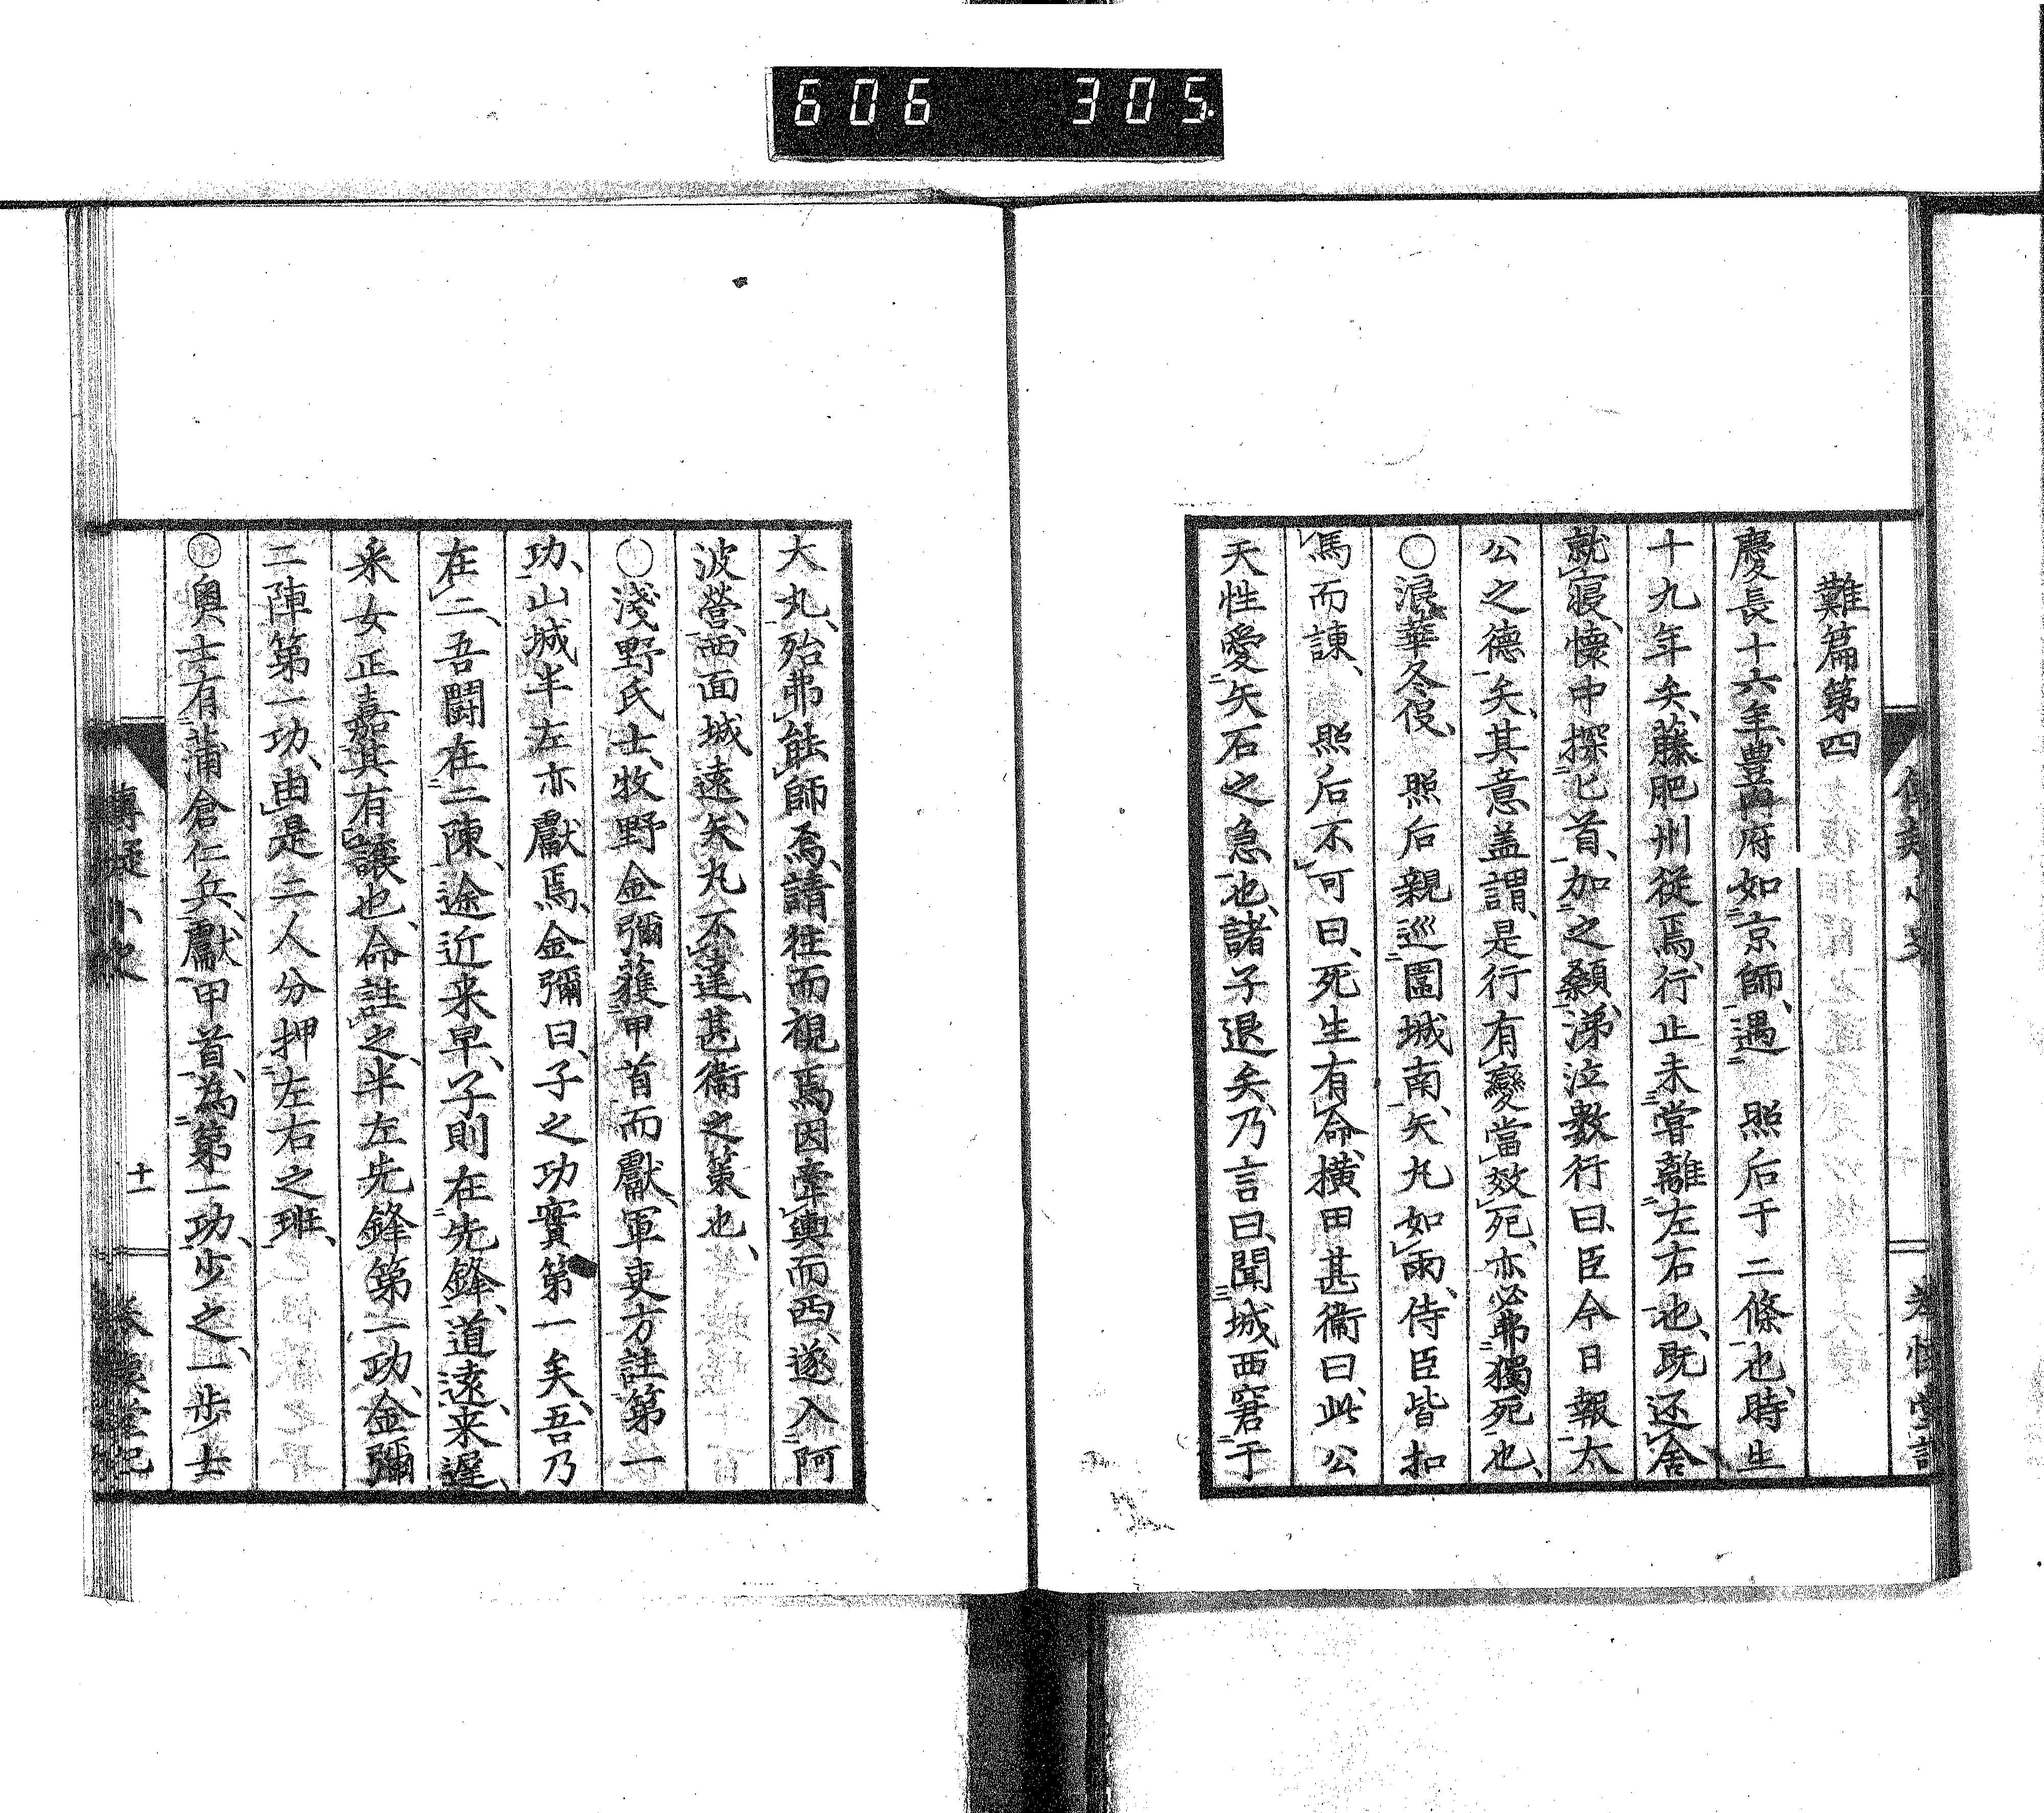 606 305.
難篇第四
慶長十六年、豊内府如京師、遇 照后于二條也、時生
十九年矣、藤肥州從焉、行止未嘗離左右也、既还舍
就寢、懷中探匕首、加之顙、涕泣數行曰、臣今日報太
公之德矣、其意盖謂、是行有變當效死、亦必弗獨死也、
○浪華冬役、 照后親巡圍城南、矢丸如雨、侍臣皆扣
馬而諌、 照后不可曰、死生有命、横田甚衞曰、此公
天性愛矢石之急也、諸子退矣、乃言曰、聞城西窘于
大丸、殆弗能師焉、請往而視焉、因牽輿而西、遂入阿
波營、西面城遠、矢丸不達、甚衞之策也、
○淺野氏士、牧野金彌獲甲首而獻、軍吏方註第一
功、山城半左亦獻焉、金彌曰、子之功實第一矣、吾乃
在二、吾鬪在二陳、途近来早、子則在先鋒、道遠来遲、
采女正嘉其有讓也、命註之、半左先鋒第一功、金彌
二陣第一功、由是二人分押左右之班、
○奥士有蒲倉仁兵、獻甲首、為第一功、少之、一歩士
十一